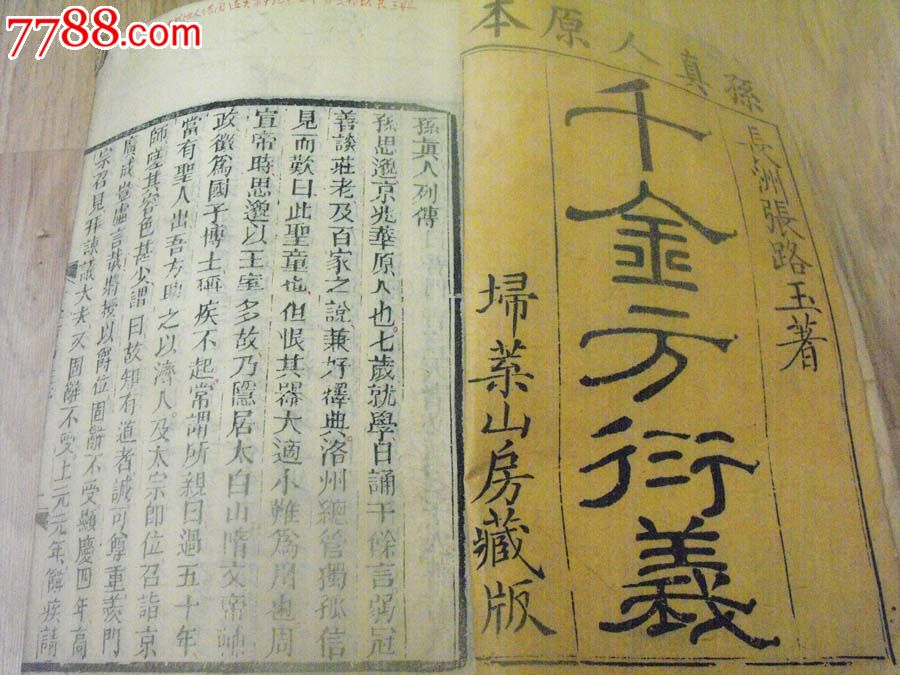 7788.com
孫真人原本
長洲張路玉著
千金方衍義
埽葉山房藏版
孫眞人列傳
孫思邈京兆華原人也七歲就學日誦千餘言弱冠
善談莊老及百家之說兼好釋典洛州總管獨孤信
見而歎曰此聖童也但恨其器大適小難爲用也周
宣帝時思邈以王室多故乃隱居太白山隋文帝輔
政徵爲國子博士稱疾不起常謂所親曰過五十年
當有聖人出吾方助之以濟人及太宗卽位召詣京
師嗟其容色甚少謂曰故知有道者誠可尊重羨門
廣成豈虛言哉將授以爵位固辭不受顯慶四年高
宗召見拜諫議大夫又固辭不受上元元年辭疾請